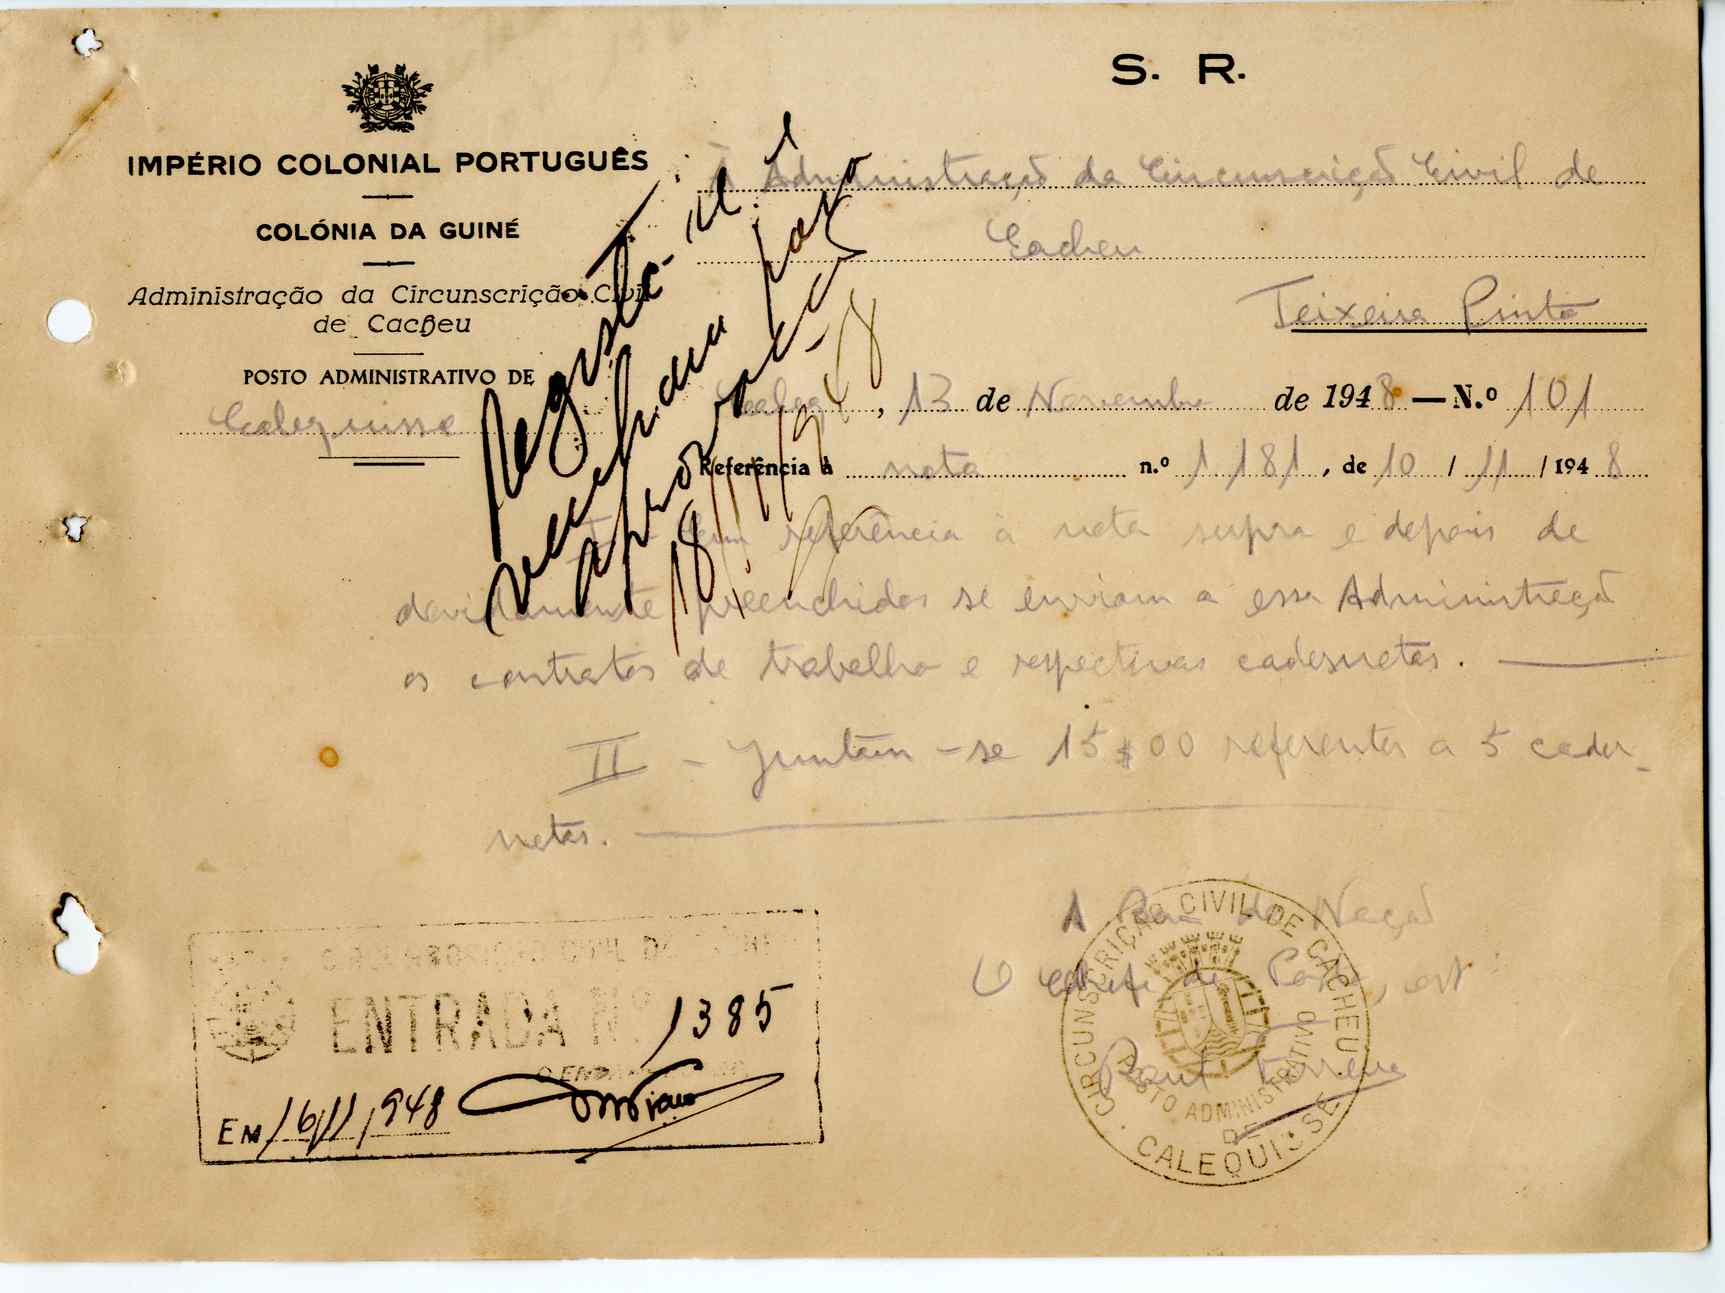 S. R.
IMPÉRIO COLONIAL PORTUGUÊS
COLÓNIA DA GUINÉ
Administração da Circunscrição Civil
de Cacheu
POSTO ADMINISTRATIVO DE
Calequisse
À Administração da Circunscrição Civil de
Cacheu
Teixeira Pinto
, 13 de Novembro de 1948 — N.º 101
Referência à nota n.º 1181, de 10 / 11 / 1948
Registe-se.
para
aprovação
18/11/948
I - Em referência à nota supra e depois de
devidamente preenchidos se enviam a essa Administração
os contratos de trabalho e respectivas cadernetas.
II - Juntam-se 15$00 referentes a 5 cader-
netas.
A Bem da Nação
O Chefe de Posto, int.
Raul
CIRCUNSCRIÇÃO CIVIL DE CACHEU
POSTO ADMINISTRATIVO
DE
CALEQUISSE
CIRCUNSCRIÇÃO CIVIL DE
ENTRADA N.º 1385
EM 16/11/948